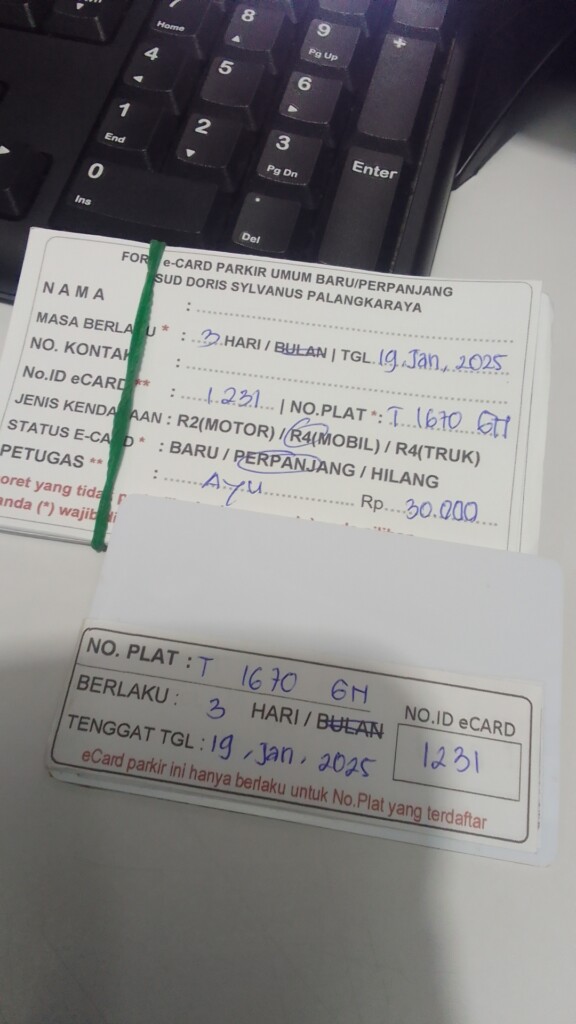 7
Home
8
9
Pg Up
+
4
5
6
1
End
2
3
Pg Dn
Enter
0
Ins
.
Del
FOR e-CARD PARKIR UMUM BARU/PERPANJANG
SUD DORIS SYLVANUS PALANGKARAYA
NAMA :
MASA BERLAKU * : 3 HARI / BULAN | TGL 19, Jan, 2025
NO. KONTAK :
No.ID eCARD ** : 1231 | NO.PLAT *: T 1670 GH
JENIS KENDARAAN : R2(MOTOR) / R4(MOBIL) / R4(TRUK)
STATUS E-CARD * : BARU / PERPANJANG / HILANG
PETUGAS ** : Ayu Rp. 30.000
oret yang
anda (*) wajib
NO. PLAT : T 1670 GH
BERLAKU : 3 HARI / BULAN
NO.ID eCARD
1231
TENGGAT TGL : 19, Jan, 2025
eCard parkir ini hanya berlaku untuk No.Plat yang terdaftar